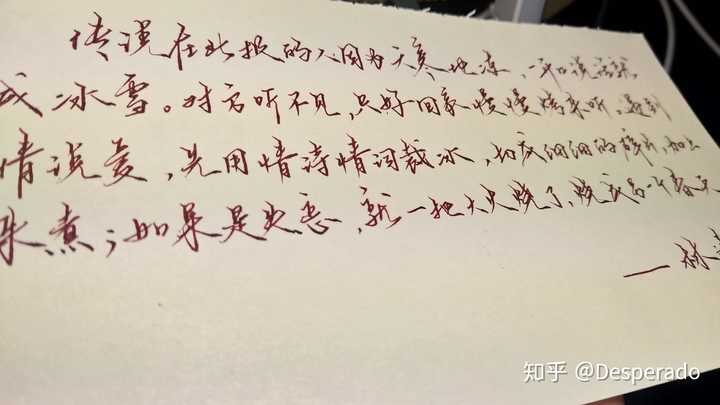 传说在北极的人因为天寒地冻，一开口说话就
成冰雪。对方听不见，只好回家慢慢烤来听，遇到
情说爱，先用情诗情词裁冰，切成细细的碎片，加上
来煮；如果是失恋，就一把大火烧了，烧成另一个春天
——林
知乎 @Desperado